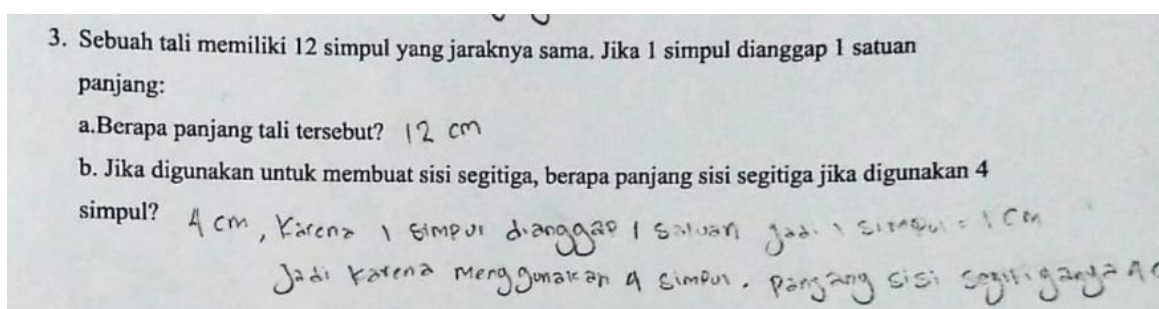 3. Sebuah tali memiliki 12 simpul yang jaraknya sama. Jika 1 simpul dianggap 1 satuan
panjang:
a.Berapa panjang tali tersebut? 12 cm
b. Jika digunakan untuk membuat sisi segitiga, berapa panjang sisi segitiga jika digunakan 4
simpul? 4 cm, Karena 1 simpul dianggap 1 satuan jadi 1 simpul = 1 cm
Jadi karena menggunakan 4 simpul. panjang sisi segitiganya 4